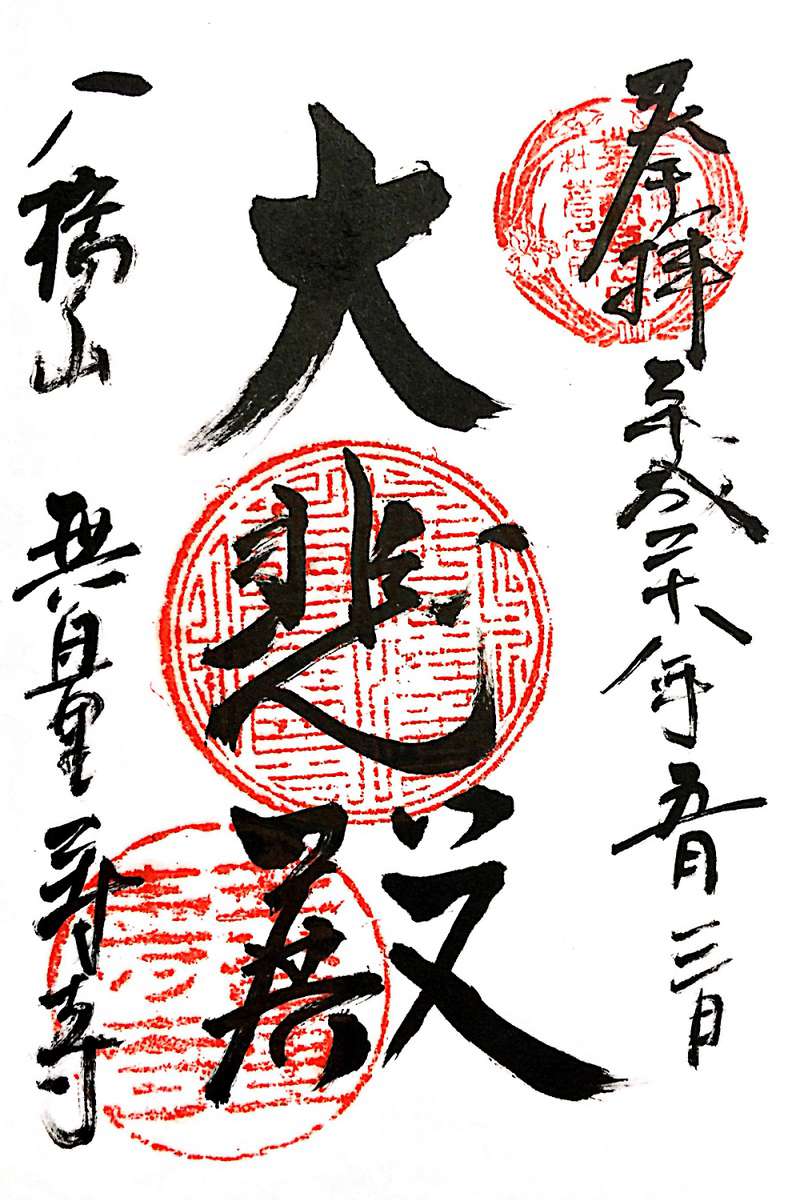 奉拝 平成二十八年五月三日
大悲殿
八橋山 無量寿寺